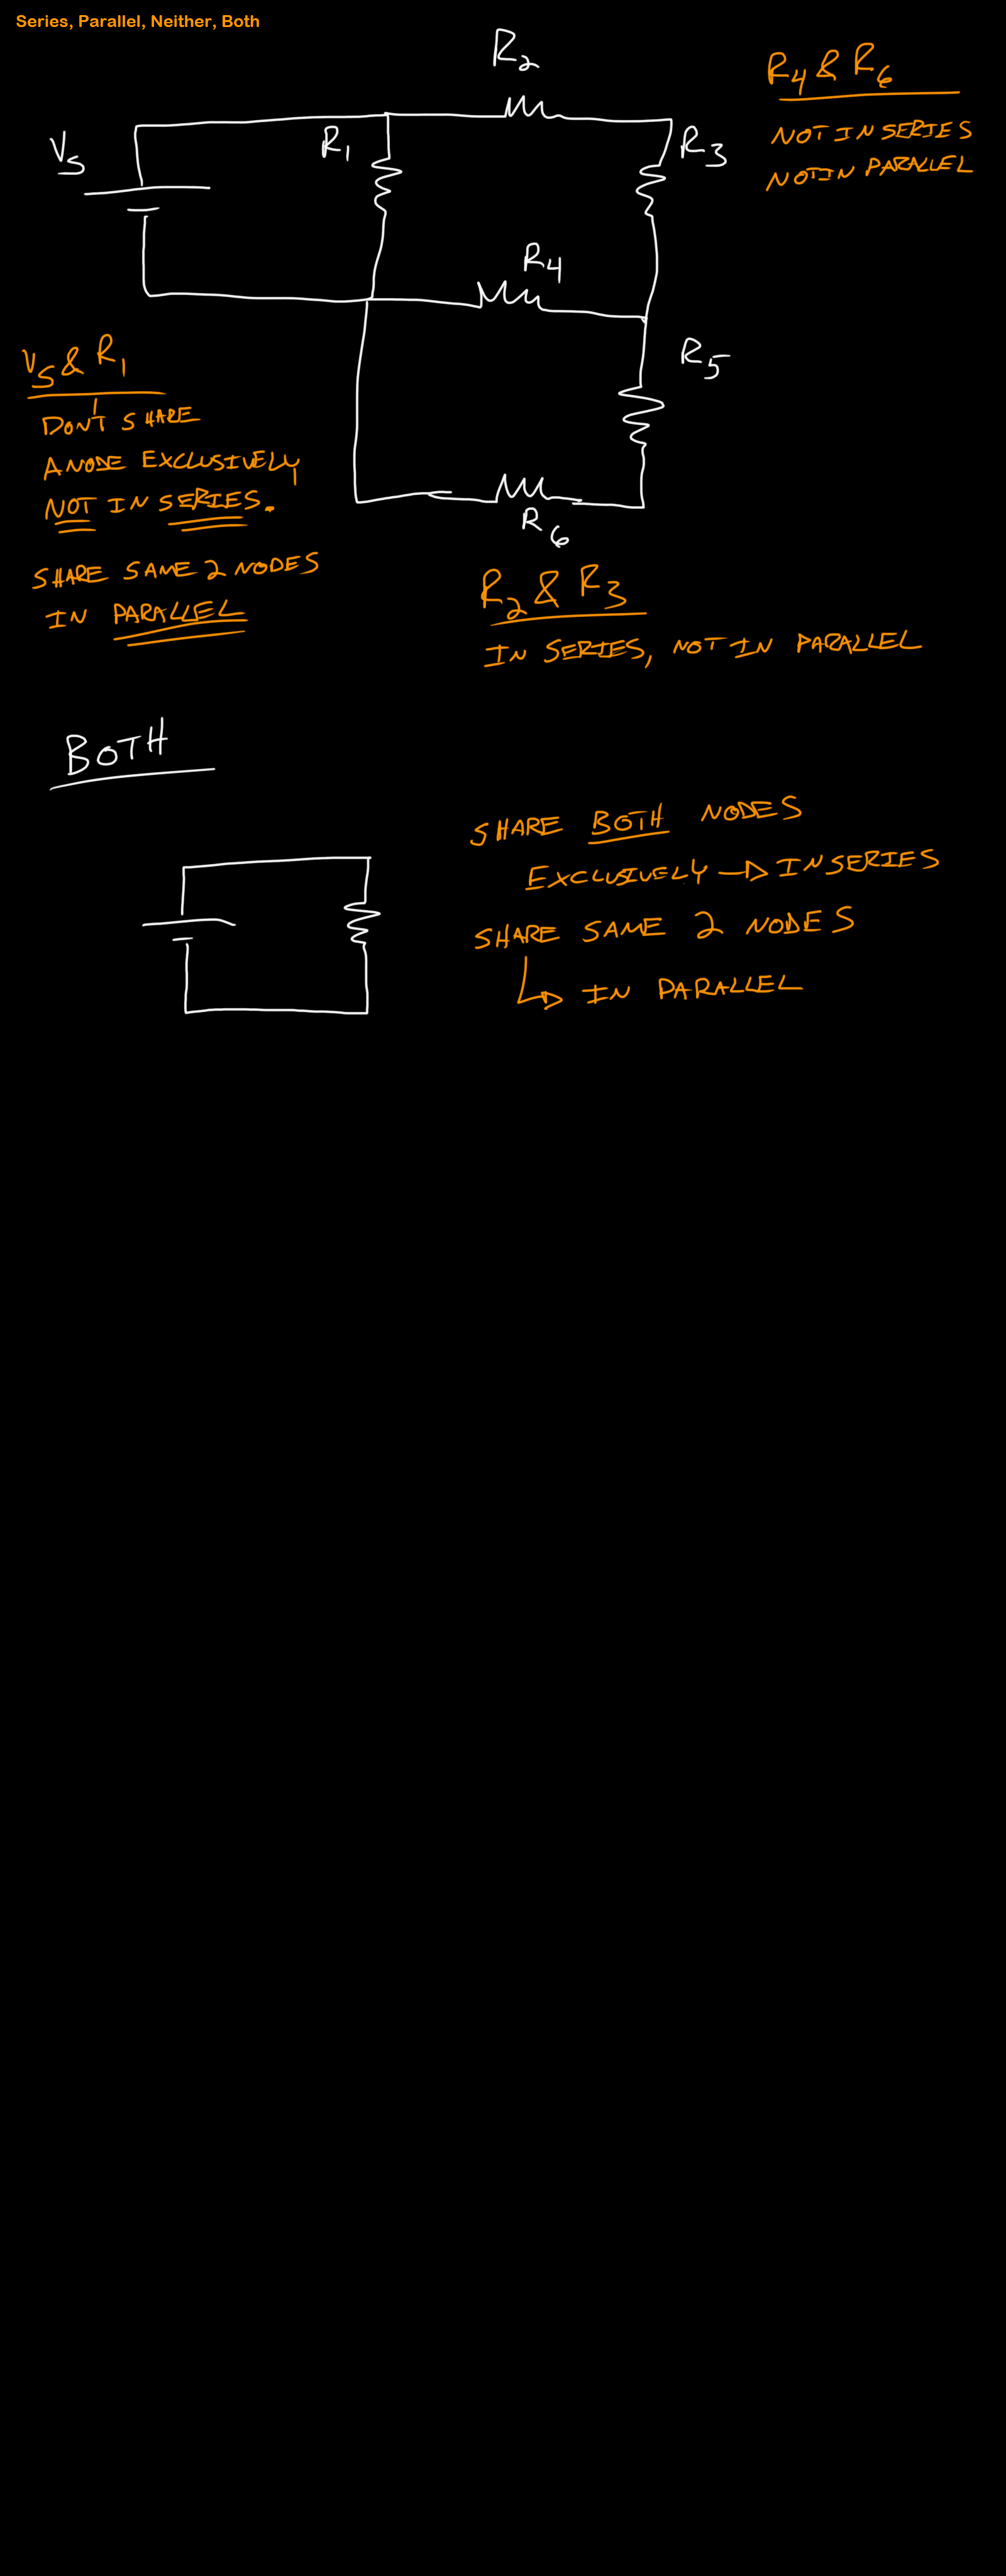 Series, Parallel, Neither, Both
R2
R4 & R6
NOT IN SERIES
NOT IN PARALLEL
VS
R1
R3
R4
R5
R6
VS & R1
DON'T SHARE
A NODE EXCLUSIVELY
NOT IN SERIES.
SHARE SAME 2 NODES
IN PARALLEL
R2 & R3
IN SERIES, NOT IN PARALLEL
BOTH
SHARE BOTH NODES
EXCLUSIVELY → IN SERIES
SHARE SAME 2 NODES
↳ IN PARALLEL